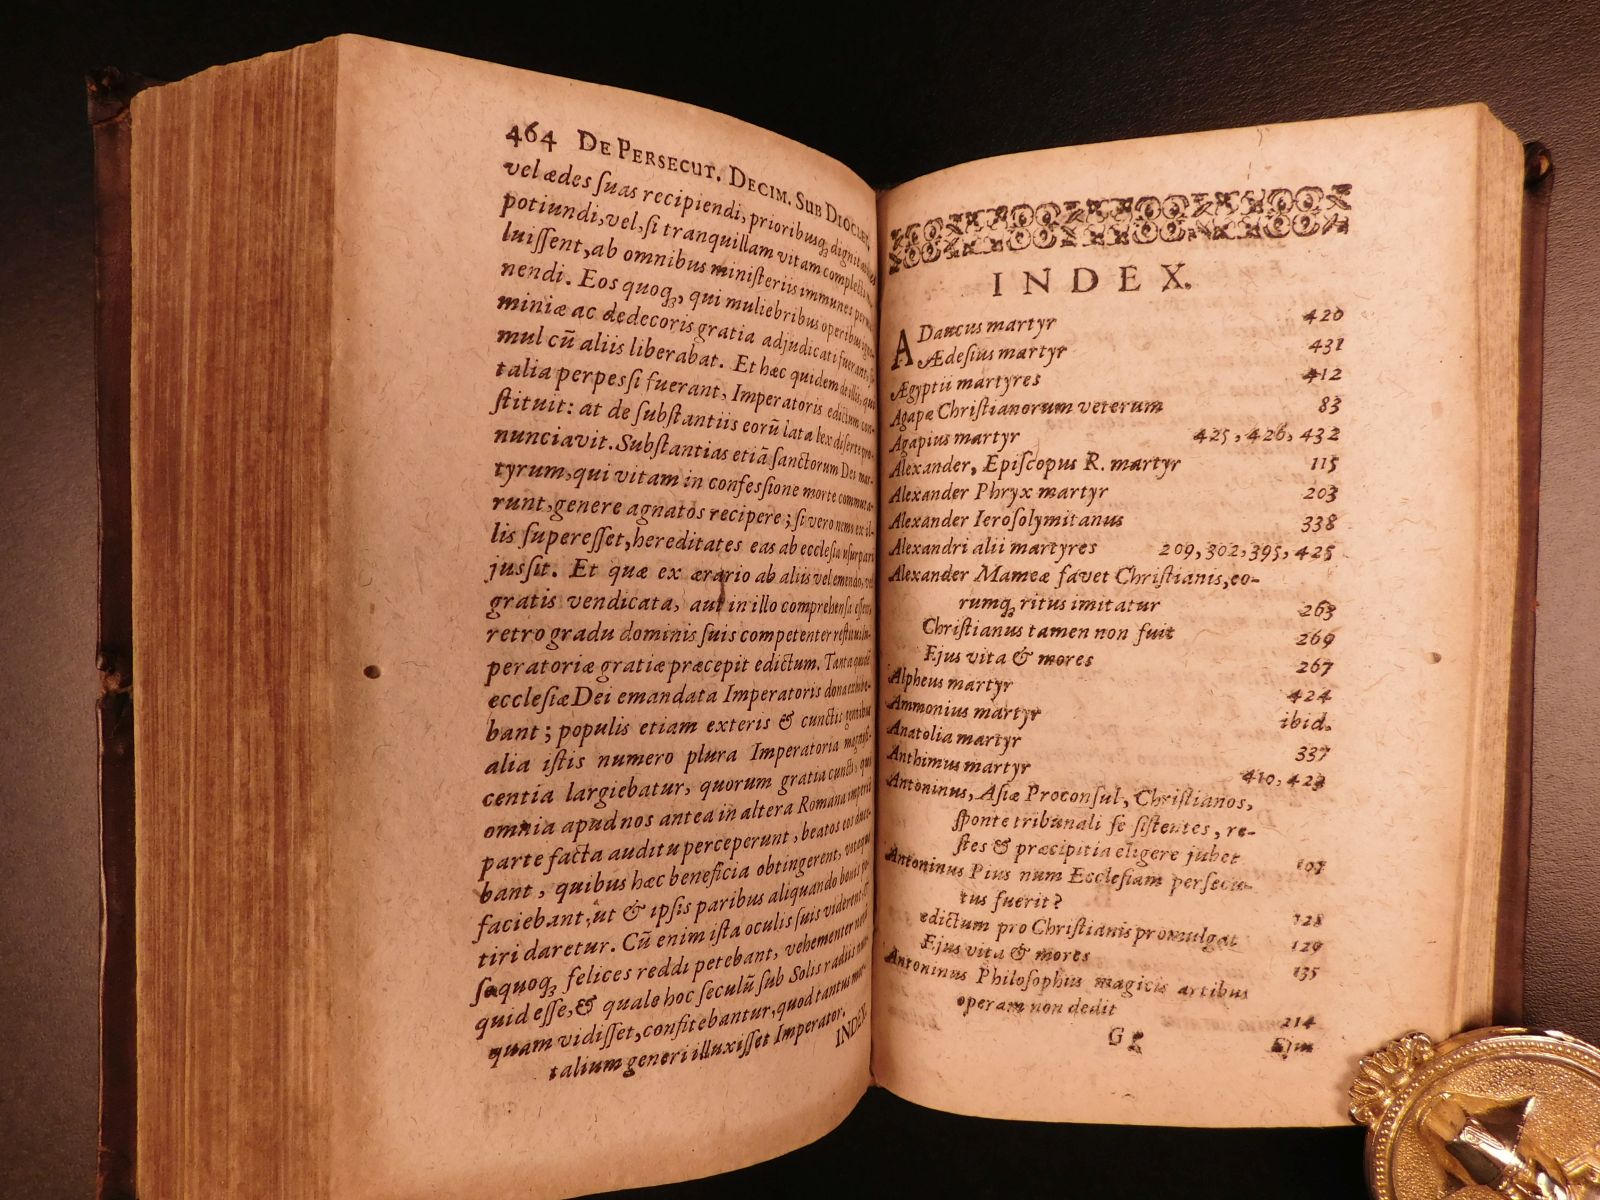 464 DE PERSECUT. DECIM. SUB DIOCLET.
vel ædes ſuas recipiendi, prioribusq́; dignitatibus
potiundi, vel, ſi tranquillam vitam complecti
luiſſent, ab omnibus miniſteriis immunes
nendi. Eos quoq́;, qui muliebribus operibus
miniæ ac dedecoris gratia adjudicati fuerant,
mul cū aliis liberabat. Et hæc quidem de illis, qui
talia perpeſſi fuerant, Imperatoris edictum con-
ſtituit: at de ſubſtantiis eorū lata lex diſerte pro-
nunciavit. Subſtantias etiā ſanctorum Dei mar-
tyrum, qui vitam in confeſſione morte commuta-
runt, genere agnatos recipere; ſi vero nemo ex il-
lis ſupereſſet, hereditates eas ab eccleſia uſurpari
juſſit. Et quæ ex ærario ab aliis vel emendo, vel
gratis vendicata, aut in illo comprehenſa eſſent,
retro gradu dominis ſuis competenter reſtitui Im-
peratoriæ gratiæ præcepit edictum. Tanta quidē
eccleſiæ Dei emandata Imperatoris dona exhibe-
bant; populis etiam exteris & cunctis gentibus
alia iſtis numero plura Imperatoria magnifi-
centia largiebatur, quorum gratia cuncti, qui
omnia apud nos antea in altera Romana imperii
parte facta auditu perceperunt, beatos eos duce-
bant, quibus hæc beneficia obtingerent, votaque
faciebant, ut & ipſis paribus aliquando bonis po-
tiri daretur. Cū enim iſta oculis ſuis viderent,
ſequoq́; felices reddi petebant, vehementer
quid eſſe, & quale hoc ſeculū ſub Solis radiis
quam vidiſſet, confitebantur, quod tantus
talium generi illuxiſſet Imperator.
INDEX.
INDEX.
ADaucus martyr 420
Ædeſius martyr 431
Ægyptii martyres 412
Agapæ Chriſtianorum veterum 83
Agapius martyr 425, 426, 432
Alexander, Epiſcopus R. martyr 115
Alexander Phryx martyr 203
Alexander Ieroſolymitanus 338
Alexandri alii martyres 209, 302, 395, 425
Alexander Mameæ favet Chriſtianis, eo-
rumq́; ritus imitatur 263
Chriſtianus tamen non fuit 269
Ejus vita & mores 267
Alpheus martyr 424
Ammonius martyr ibid.
Anatolia martyr 337
Anthimus martyr 410, 423
Antoninus, Aſiæ Proconſul, Chriſtianos,
ſponte tribunali ſe ſiſtentes, re-
ſtes & præcipitia eligere jubet 107
Antoninus Pius num Eccleſiam perſecu-
tus fuerit? 128
edictum pro Chriſtianis promulgat 129
Ejus vita & mores 135
Antoninus Philoſophus magicis artibus
operam non dedit 214
Gg Ejus